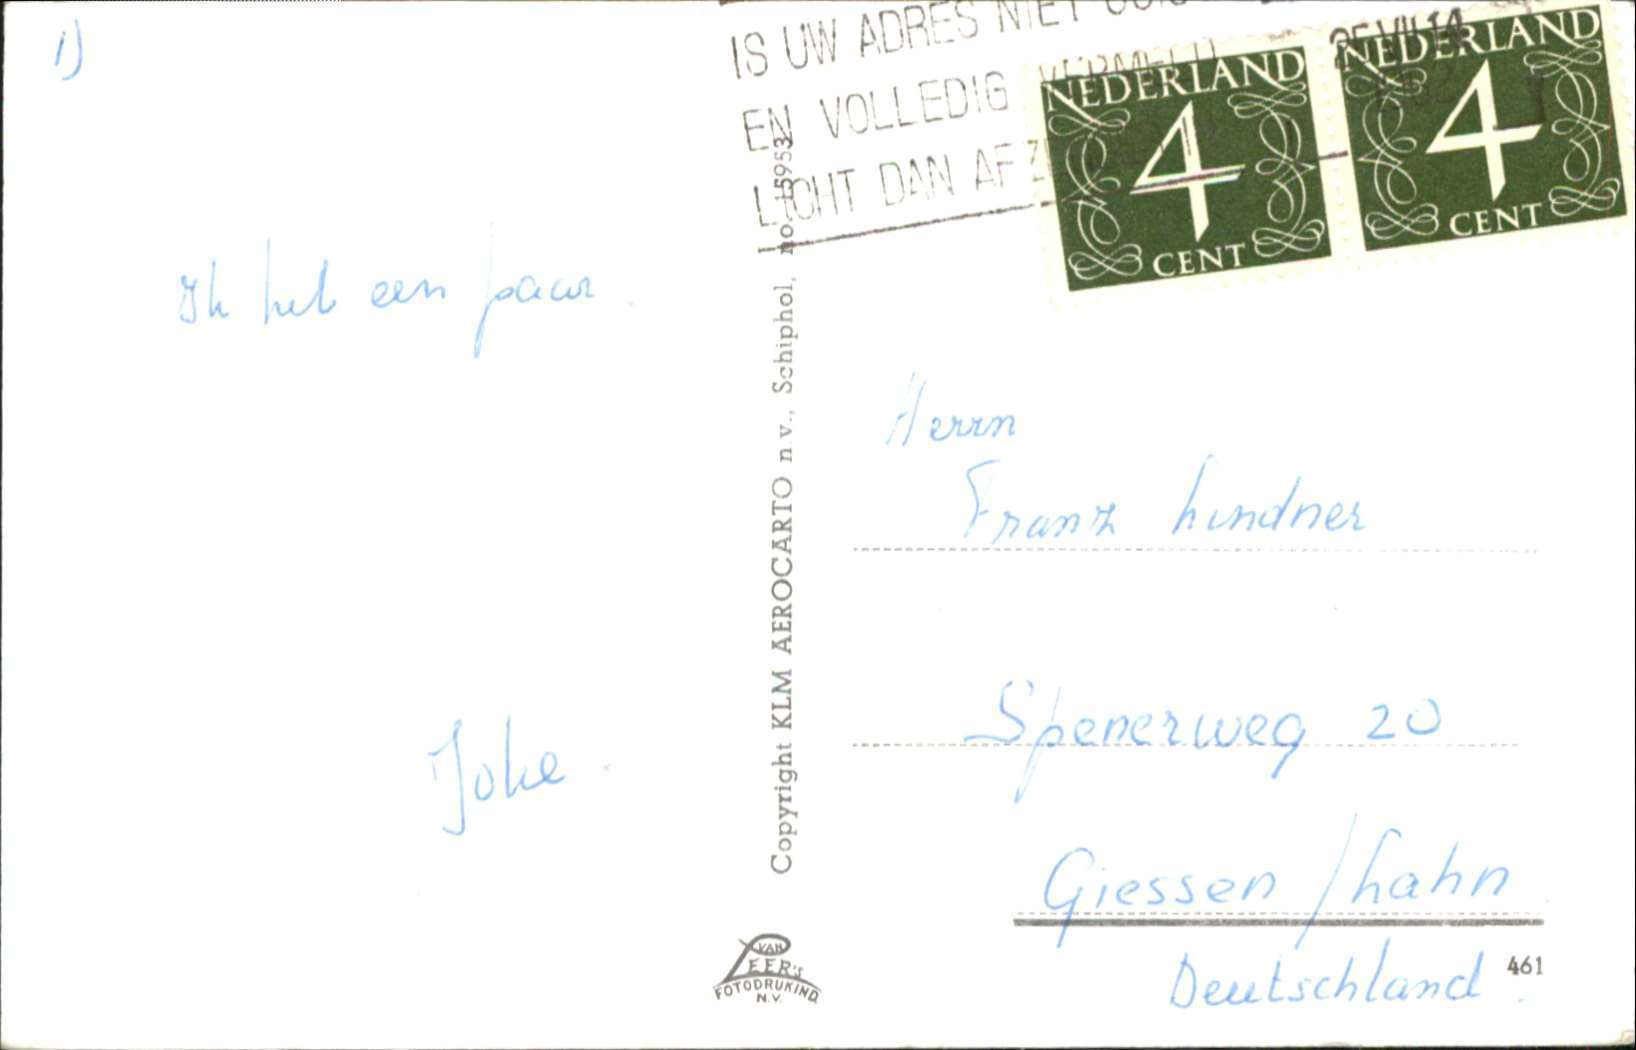 1)
IS UW ADRES NIET
EN VOLLEDIG VERMELD
LICHT DAN AFZ
25 VII 14
NEDERLAND
4
CENT
NEDERLAND
4
CENT
Ik heb een paar
Joke
Copyright KLM AEROCARTO n.v., Schiphol, no. 15953
Herrn
Franz Lindner
Spenerweg 20
Giessen / Lahn
Deutschland.
VAN
LEER'S
FOTODRUKIND.
N.V.
461